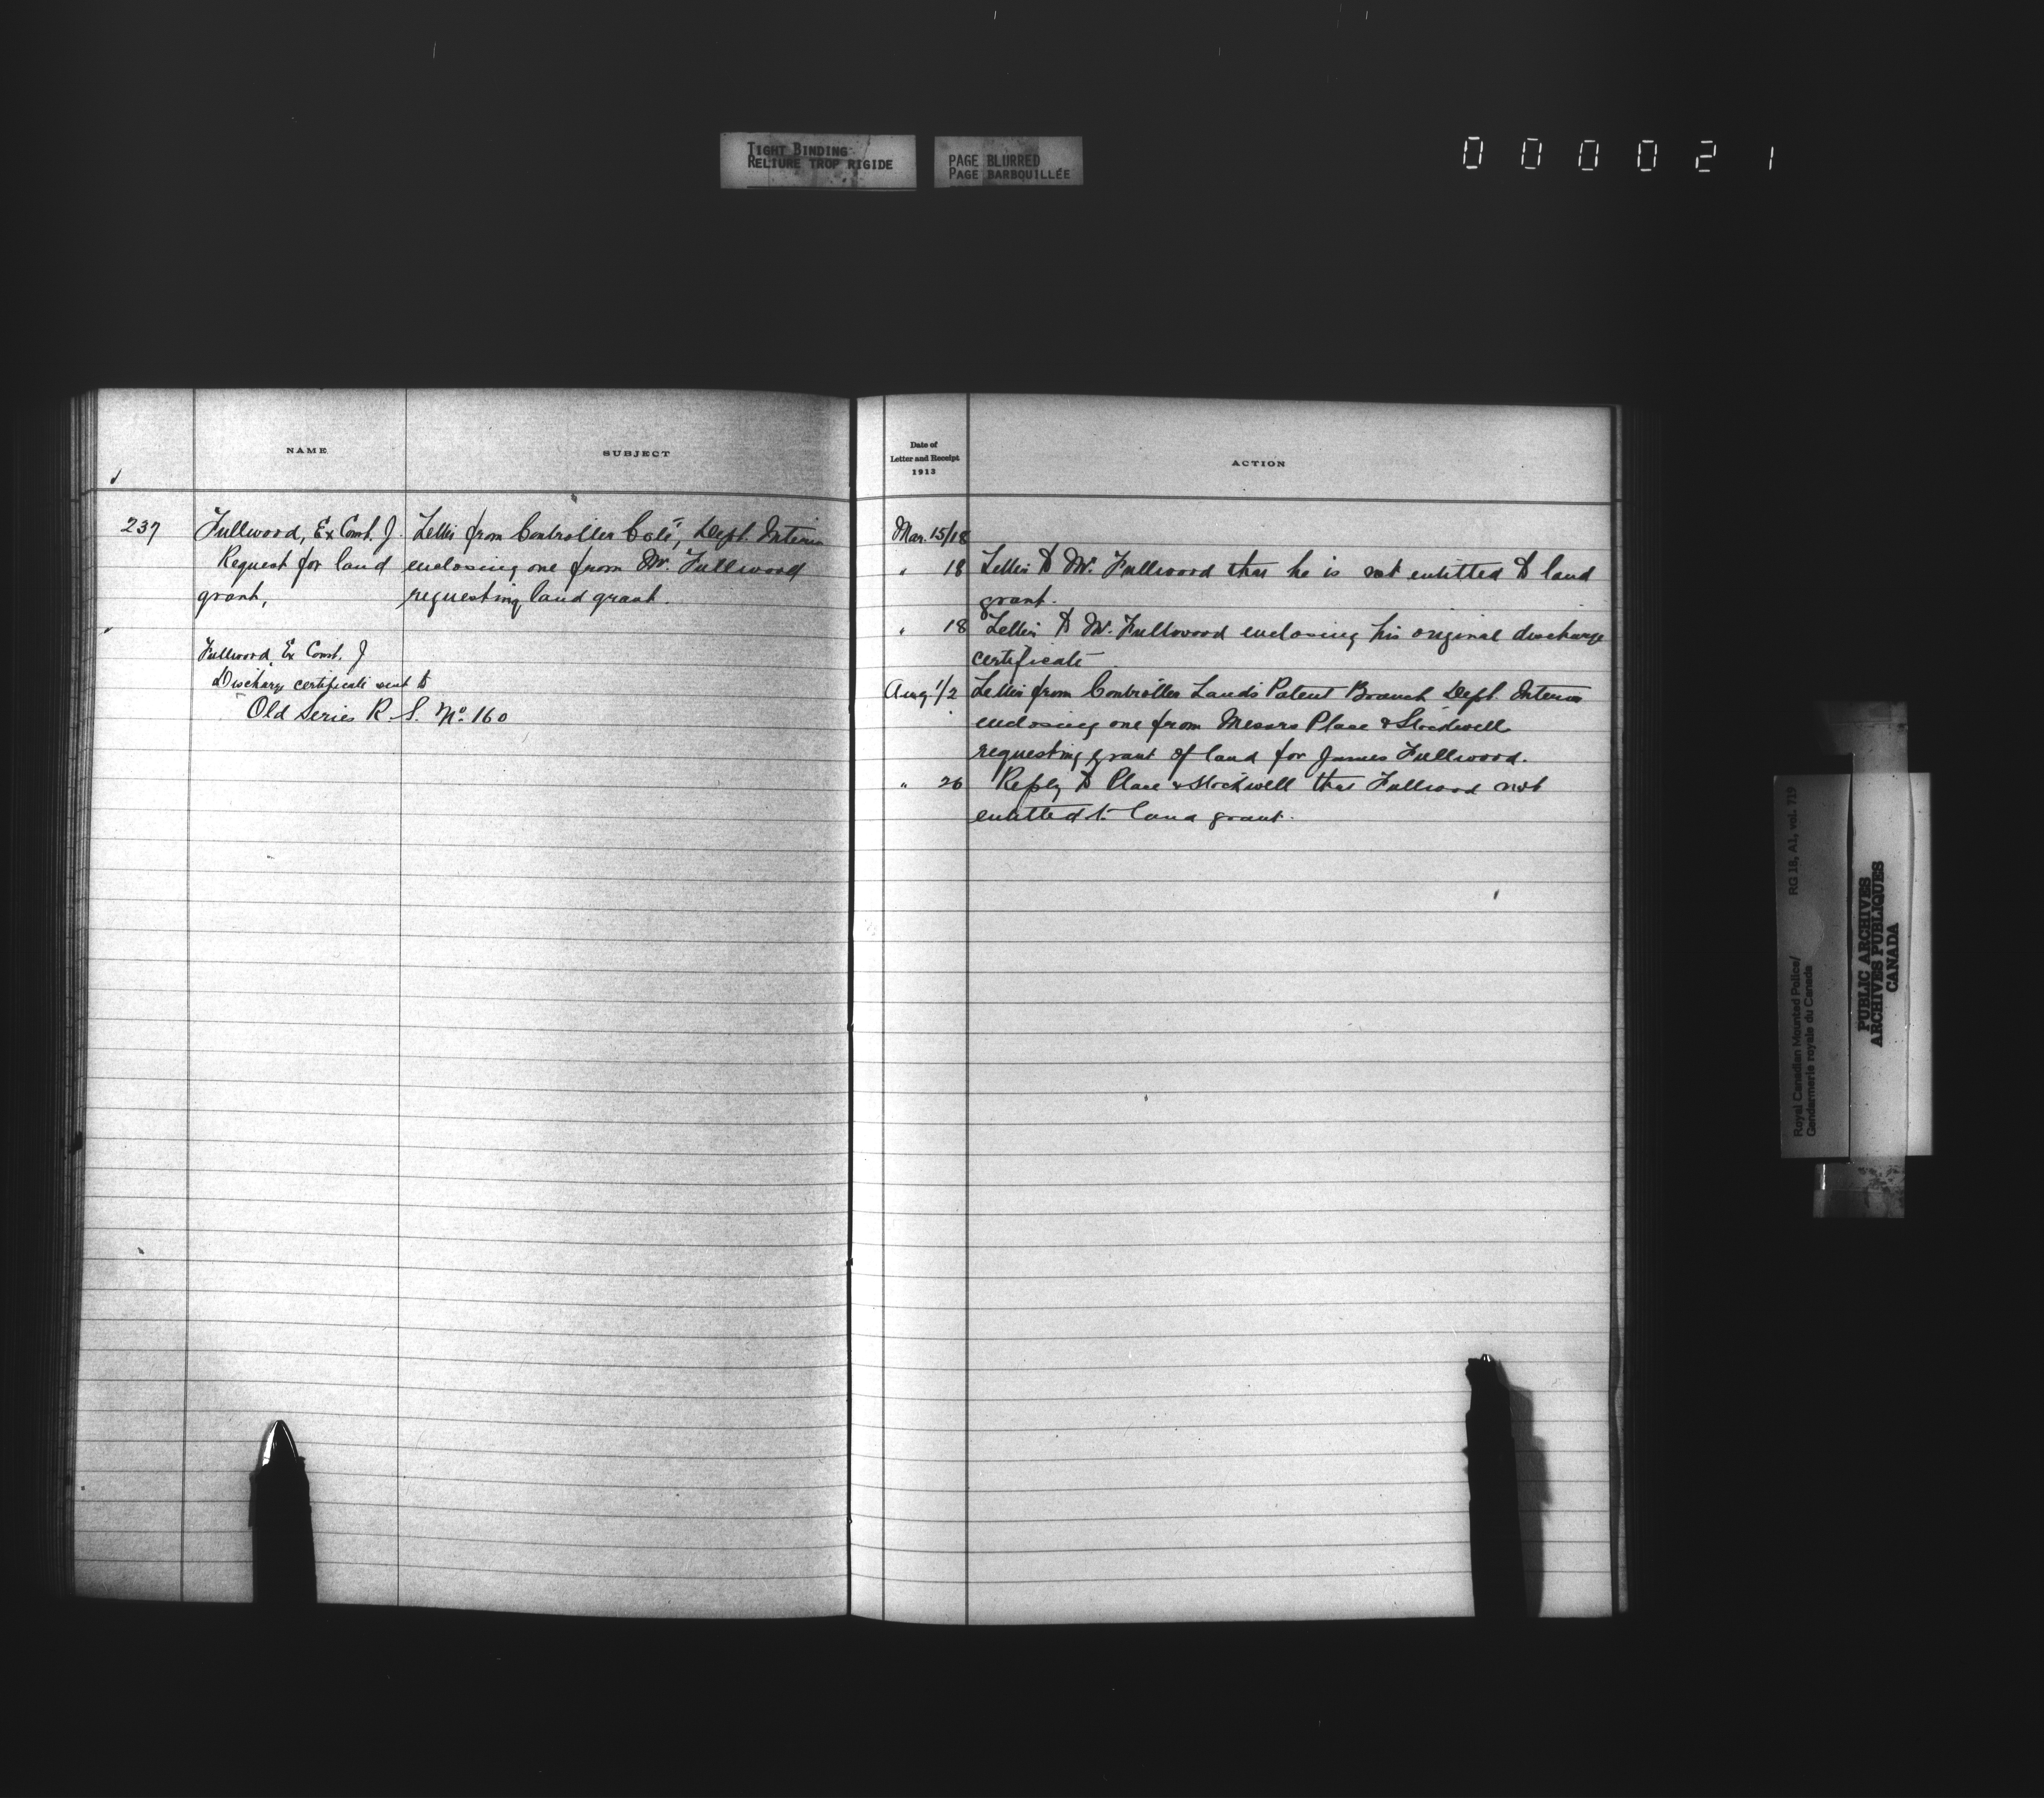 TIGHT BINDING
RELIURE TROP RIGIDE
PAGE BLURRED
PAGE BARBOUILLÉE
000021
NAME
SUBJECT
237
Fullwood, Ex Const. J.
Request for land
grant,
Letter from Controller Coté, Dept. Interior
enclosing one from Mr. Fullwood
requesting land grant.
Fullwood, Ex Const. J
Discharge certificate sent to
Old Series R. S. No. 160
Date of
Letter and Receipt
1913
ACTION
Mar. 15/18
" 18 Letter to Mr. Fullwood that he is not entitled to land
grant.
" 18 Letter to Mr. Fullwood enclosing his original discharge
certificate
Aug 1/2 Letter from Controller Lands Patent Branch Dept. Interior
enclosing one from Messrs Place & Stockwell
requesting grant of land for James Fullwood.
" 26 Reply to Place & Stockwell that Fullwood not
entitled to land grant.
Royal Canadian Mounted Police/
Gendarmerie royale du Canada
RG 18, A1, vol. 719
PUBLIC ARCHIVES
ARCHIVES PUBLIQUES
CANADA